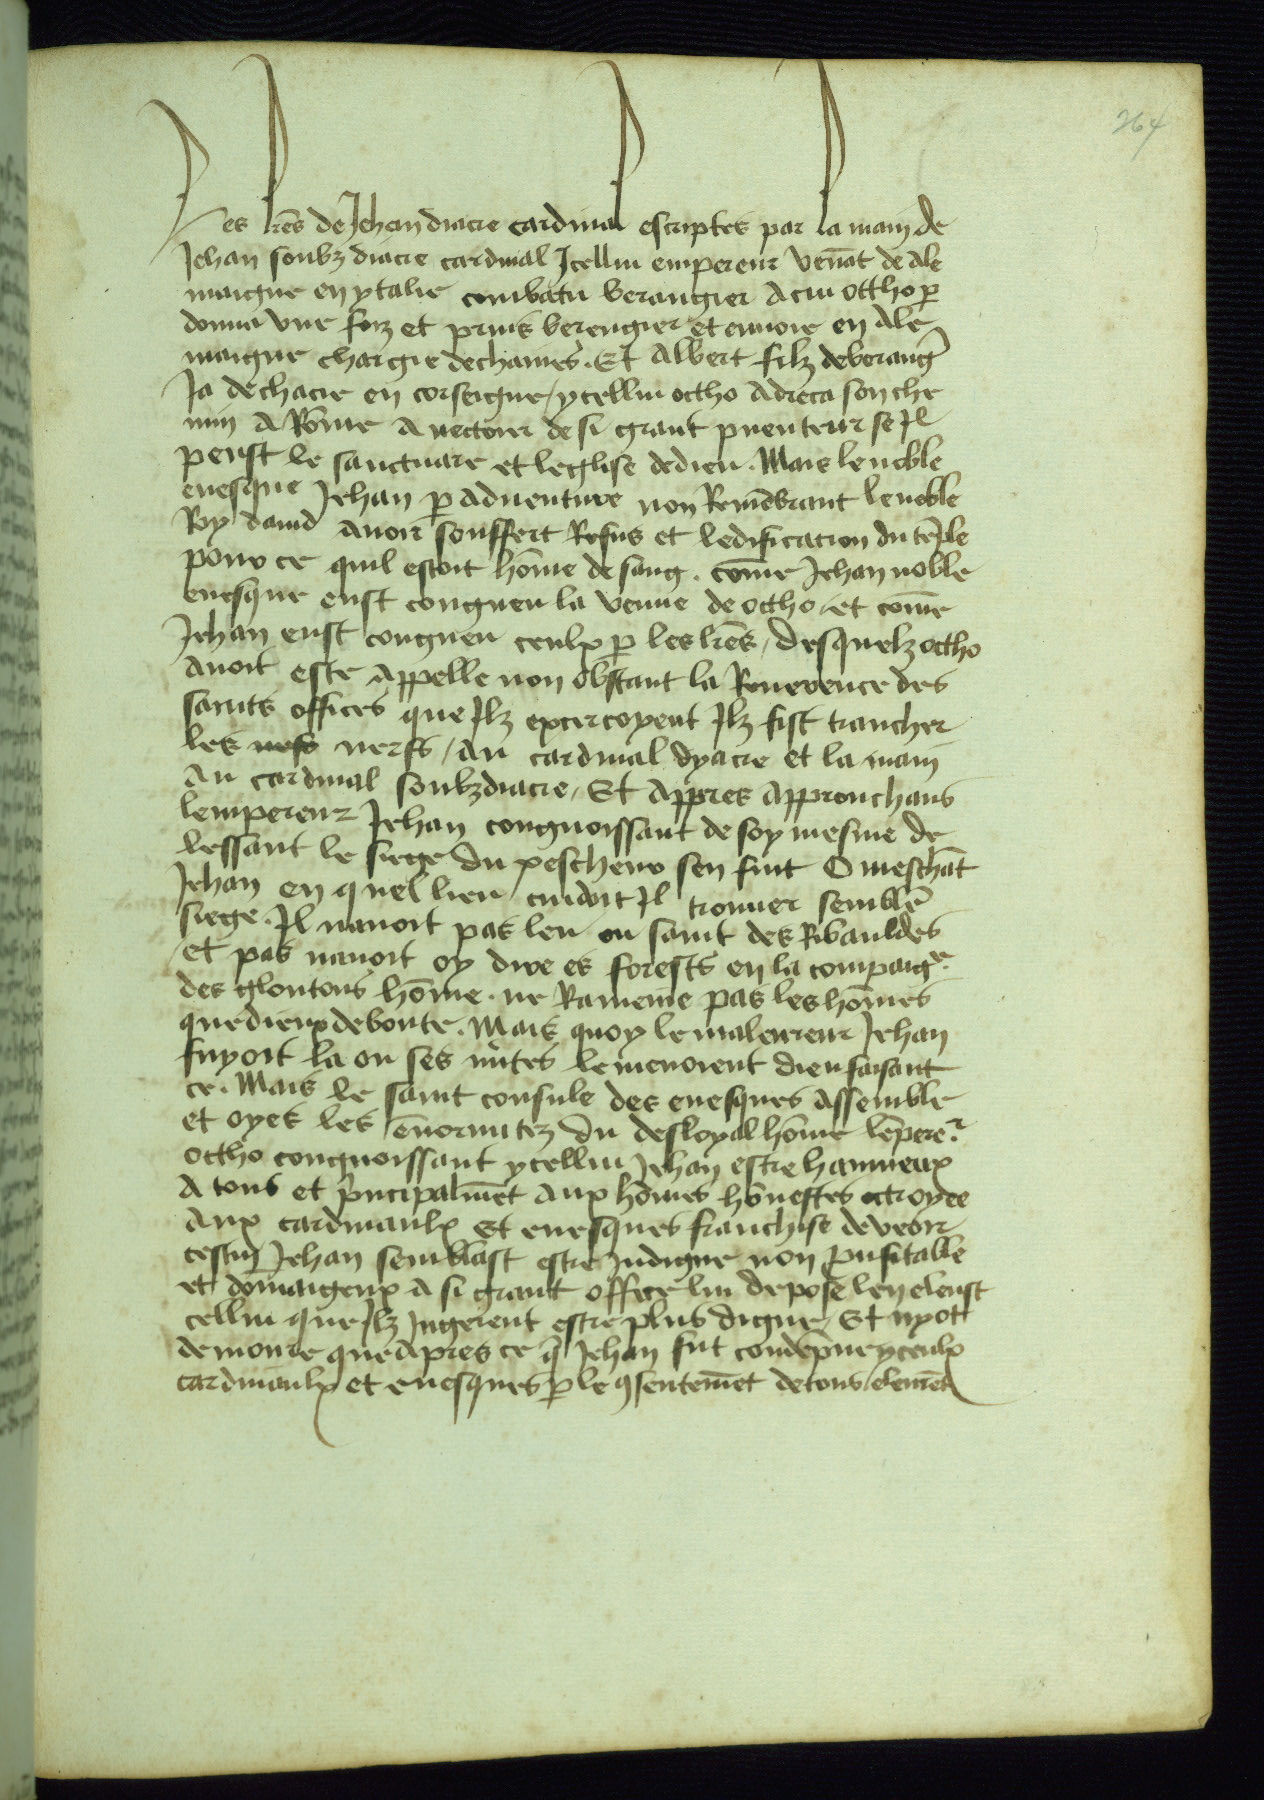 264
Les lr̄es de Jehan diacre cardinal escriptes par la main de
Jehan soubz diacre cardinal Jcellui empereur venāt de Ale
maigne en ytalie combatu berangier A cui ottho ꝑ
donna vne foiz et prins berengier et enuoie en Ale
maigne chargie de chaines. Et Albert filz de beranḡ
Ja dechacie en corseigne / ycellui ottho Adreca son che
min A Rōme A nectoier de si grant puenteur se Jl
peust le sanctuare et leglise de dieu. Mais le noble
euesque Jehan ꝑ aduenture non Remēbrant le noble
Roy dauid auoir souffert Refus et ledificacion du tēple
pour ce quil estoit hōme de sang. cōme Jehan noble
euesque eust congneu la venue de ottho / et cōme
Jehan eust congneu ceulx ꝑ les lr̄es / desquelz ottho
auoit este Appelle non obstant la Reuerence des
saints offices que Jlz excercoyent Jlz fist trancher
les nerfs / Au cardinal dyacre et la main
Au cardinal soubzdiacre / Et Appres Approuchans
lempereur Jehan congnoissant de soy mesme de
lessant le siege du pescheur sen fuit O meschāt
Jehan en quel lieu cuidoit Jl trouuer semblē
siege. Jl nauoit pas leu ou saint des Ribauldes
et pas nauoit oy dire es forests en la compaigͤ
des gloutons hōme. ne Rameine pas les hōmes
que dieux de bonte. Mais quoy le maleureux Jehan
fuyoit la ou ses m̄ites le menoient dieu faisant
ce. Mais le saint consule des euesques Assemble
et oyes les ēnormitez du desloyal hōme lēpere.ͬ
ottho congnoissant ycellui Jehan estre hayneux
A tous et p̄ncipalmēt Aux hōmes hōnestes octroyee
Aux cardinaulx Et euesques franchise de veoir
cestui Jehan semblast estre Indigne non p̄ufitable
et domaigeux A si grant office lui depose len eleust
cellui que Jlz Jugerent estre plus digne / Et ny ot
demoure que Apres ce q̄ Jehan fut condēpne yceulx
cardinaulx et euesques ꝑ le ꝯsentemēt de tous /